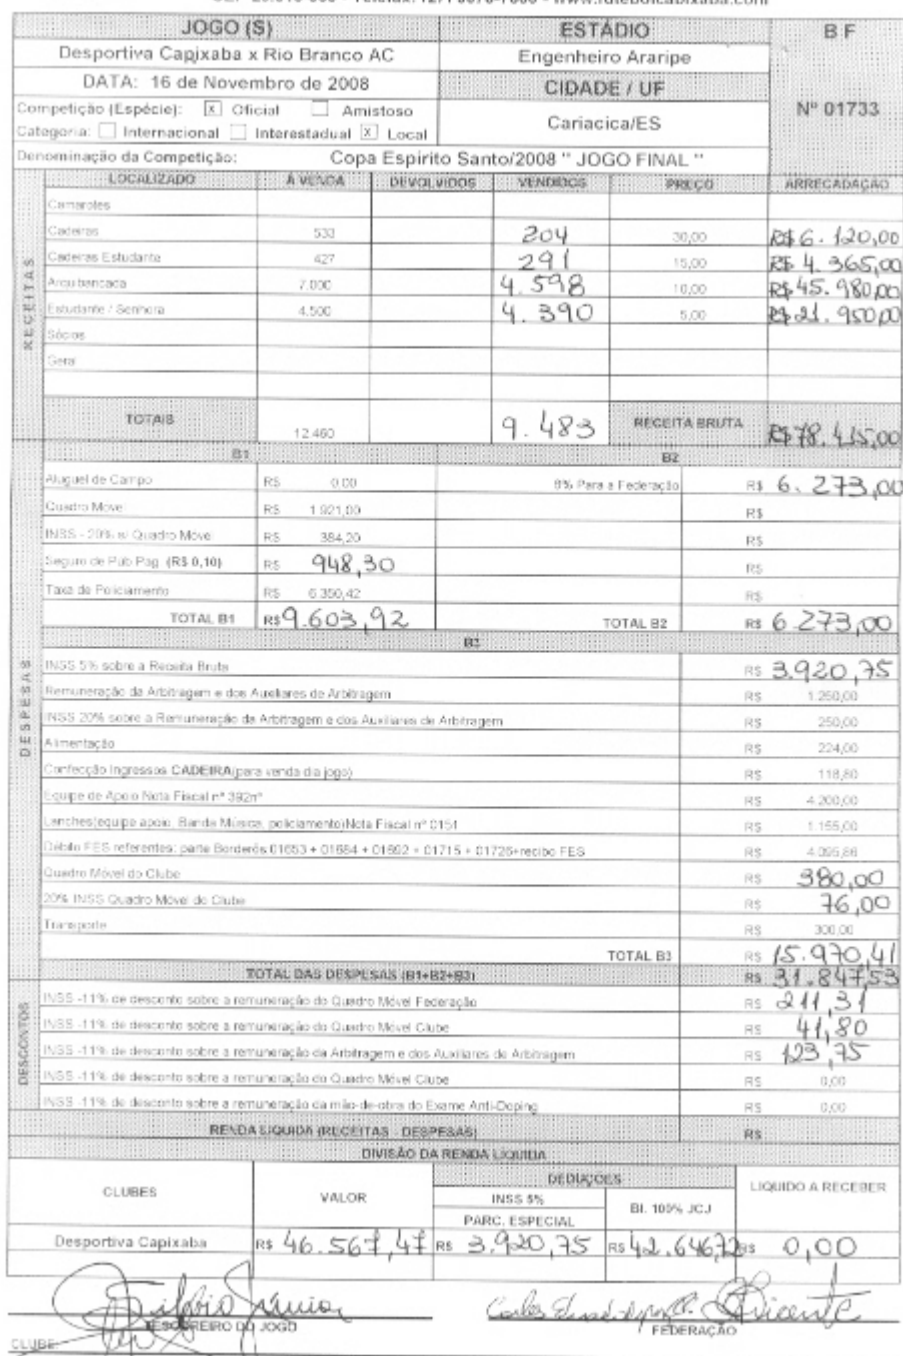 JOGO (S) ESTÁDIO B F
Desportiva Capixaba x Rio Branco AC Engenheiro Araripe
DATA: 16 de Novembro de 2008 CIDADE / UF
Competição (Espécie): x Oficial Amistoso Nº 01733
Categoria: Internacional Interestadual x Local Cariacica/ES
Denominação da Competição: Copa Espirito Santo/2008 " JOGO FINAL "
RECEITAS
LOCALIZADO A VENDA DEVOLVIDOS VENDIDOS PREÇO ARRECADAÇÃO
Camarotes
Cadeiras 533 204 30,00 R$ 6.120,00
Cadeiras Estudante 427 291 15,00 R$ 4.365,00
Arquibancada 7.000 4.598 10,00 R$ 45.980,00
Estudante / Senhora 4.500 4.390 5,00 R$ 21.950,00
Sócios
Geral
TOTAIS 12.460 9.483 RECEITA BRUTA R$ 78.415,00
DESPESAS
B1 B2
Aluguel de Campo R$ 0,00 8% Para a Federação R$ 6.273,00
Quadro Movel R$ 1.921,00 R$
INSS - 20% s/ Quadro Móvel R$ 384,20 R$
Seguro de Pub Pag (R$ 0,10) R$ 948,30 R$
Taxa de Policiamento R$ 6.350,42 R$
TOTAL B1 R$ 9.603,92 TOTAL B2 R$ 6.273,00
B3
INSS 5% sobre a Receita Bruta R$ 3.920,75
Remuneração da Arbitragem e dos Auxeliares de Arbitragem R$ 1.250,00
INSS 20% sobre a Remuneração da Arbitragem e dos Auxiliares de Arbitragem R$ 250,00
Alimentação R$ 224,00
Confecção Ingressos CADEIRA(para venda dia jogo) R$ 118,80
Equipe de Apoio Nota Fiscal nº 392nº R$ 4.200,00
Lanches(equipe apoio, Banda Música, policiamento)Nota Fiscal nº 0151 R$ 1.155,00
Débito FES referentes: parte Borderôs 01653 + 01684 + 01692 + 01715 + 01726+recibo FES R$ 4.095,86
Quadro Móvel do Clube R$ 380,00
20% INSS Quadro Móvel do Clube R$ 76,00
Transporte R$ 300,00
TOTAL B3 R$ 15.970,41
TOTAL DAS DESPESAS (B1+B2+B3) R$ 31.847,53
DESCONTOS
INSS -11% de desconto sobre a remuneração do Quadro Móvel Federação R$ 211,31
INSS -11% de desconto sobre a remuneração do Quadro Móvel Clube R$ 41,80
INSS -11% de desconto sobre a remuneração da Arbitragem e dos Auxiliares de Arbitragem R$ 123,75
INSS -11% de desconto sobre a remuneração do Quadro Móvel Clube R$ 0,00
INSS -11% de desconto sobre a remuneração da mão-de-obra do Exame Anti-Doping R$ 0,00
RENDA LIQUIDA (RECEITAS - DESPESAS) R$
DIVISÃO DA RENDA LIQUIDA
CLUBES VALOR DEDUÇÕES LIQUIDO A RECEBER
INSS 5% BI. 100% JCJ
PARC. ESPECIAL
Desportiva Capixaba R$ 46.567,47 R$ 3.920,75 R$ 42.646,72 R$ 0,00
TESOUREIRO DO JOGO FEDERAÇÃO
CLUBE: